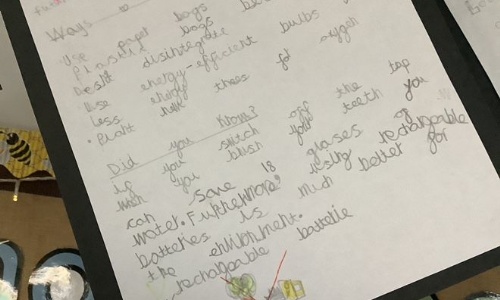 Ways
Use paper bags
plastic bags
Desnt disintegrate
Use energy-efficient bulbs
less energy
• Plant new trees for oxygen
Did you know?
if you switch off the tap
wen you brush your teeth you
can save 18 glasses of
water. Furthermore, using rechargeable
batteries is much better for
the enviroment.
rechargeable batterie